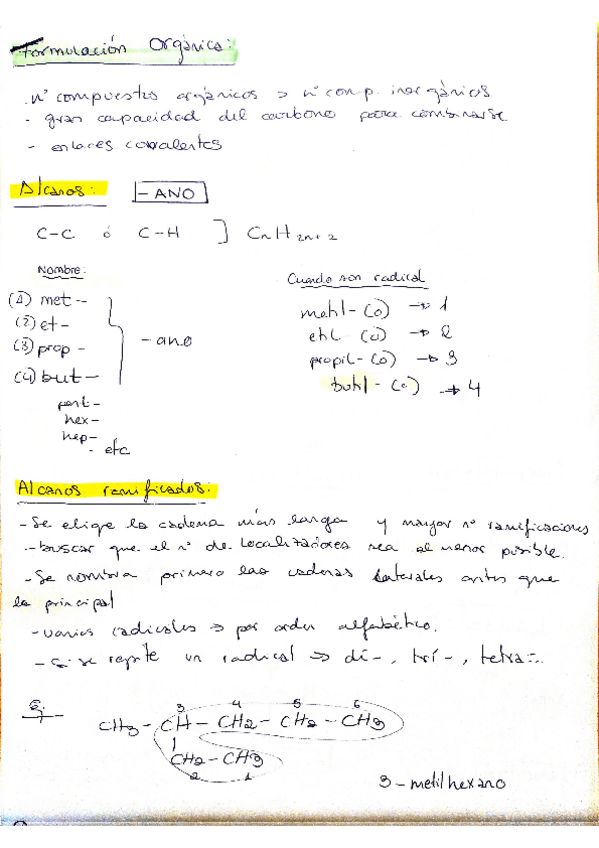 Formulación Orgánica:
. nº compuestos orgánicos > nº comp. inorgánicos
- gran capacidad del carbono para combinarse
- enlaces covalentes
Alcanos: - ANO
C-C ó C-H ] CnH2n+2
Nombre:
(1) met -
(2) et -
(3) prop -
(4) but -
pent -
hex -
hep -
- etc
- ano
Cuando son radical
metil - (o) → 1
etil (o) → 2
propil - (o) → 3
butil - (o) → 4
Alcanos ramificados:
- Se elige la cadena más larga y mayor nº ramificaciones
- buscar que el nº de localizadores sea el menor posible.
- Se nombra primero las cadenas laterales antes que
la principal
- varios radicales → por orden alfabético.
- Si se repite un radical ⇒ di-, trí-, tetra-.
Ej -
3 4 5 6
CH3 - CH - CH2 - CH2 - CH3
|
CH2 - CH3
2 1
3 - metilhexano